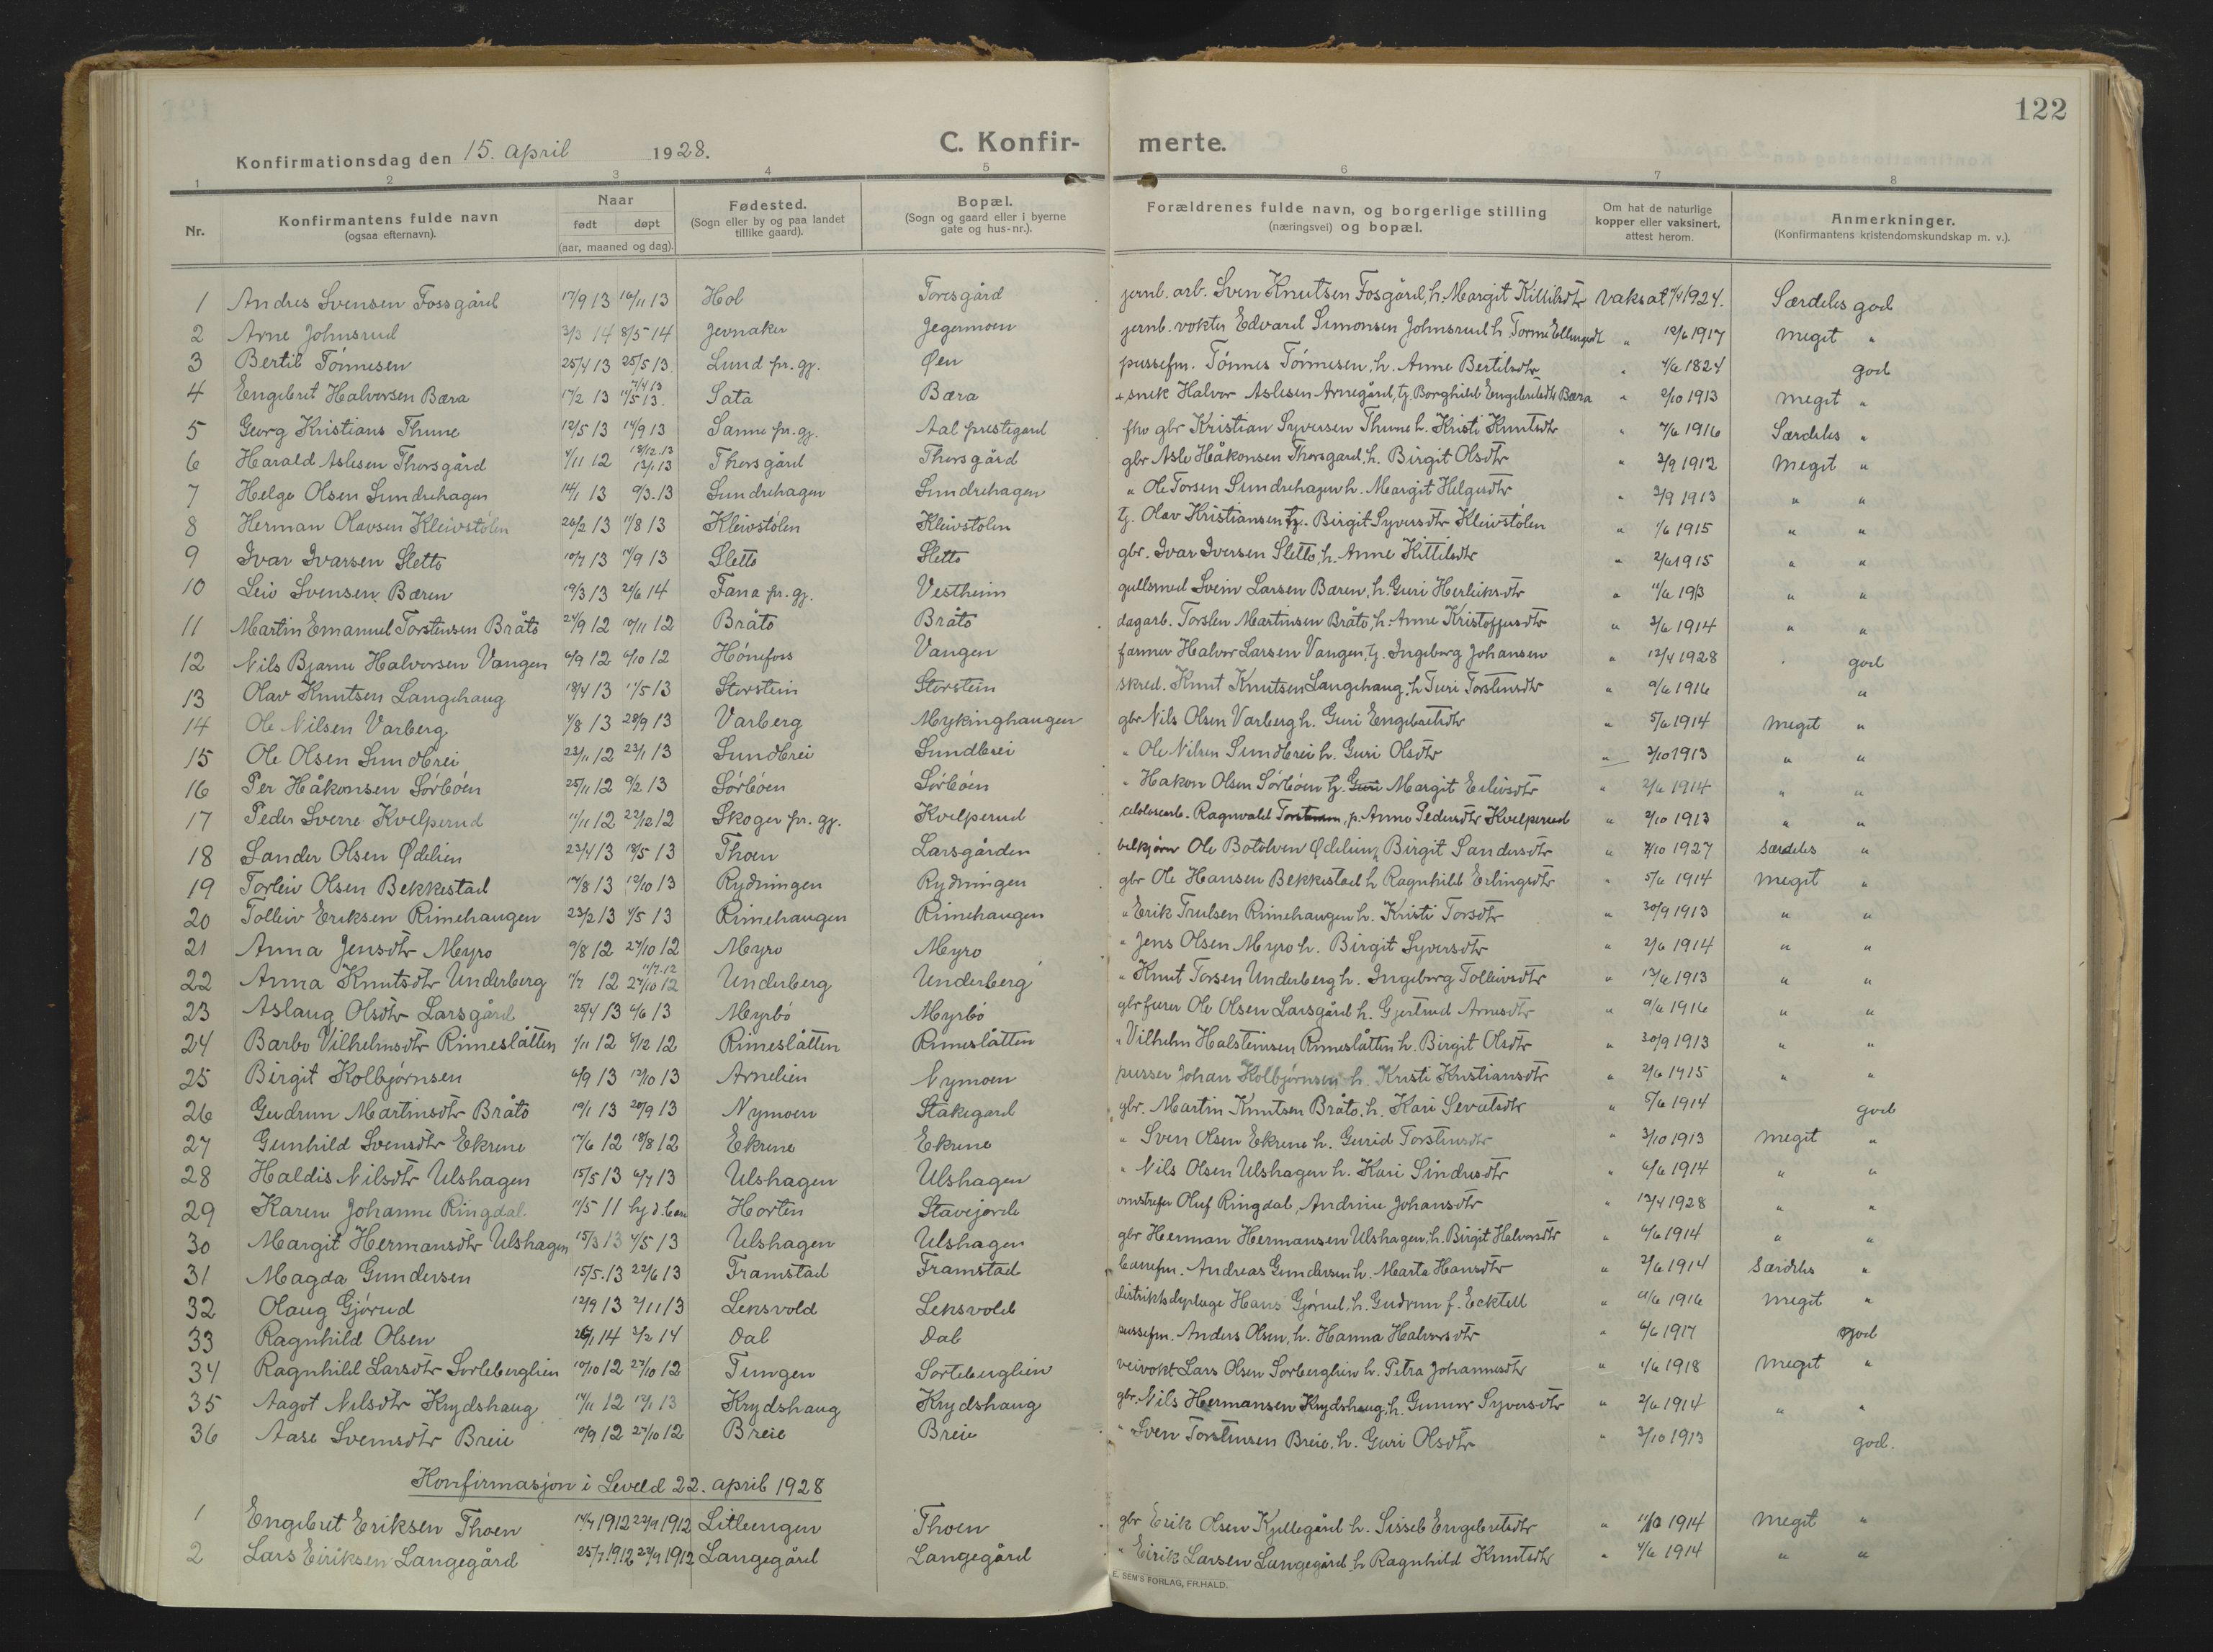 122
Konfirmationsdag den 15. april 1928. C. Konfir- merte.
1 2 3 4 5 6 7 8
Nr. Konfirmantens fulde navn (ogsaa efternavn). Naar født døpt (aar, maaned og dag). Fødested. (Sogn eller by og paa landet tillike gaard). Bopæl. (Sogn og gaard eller i byerne gate og hus-nr.). Forældrenes fulde navn, og borgerlige stilling (næringsvei) og bopæl. Om hat de naturlige kopper eller vaksinert, attest herom. Anmerkninger. (Konfirmantens kristendomskundskap m. v.).
1 Andres Svensen Fossgård 17/9 13 16/11 13 Hol Toresgård jernb. arb. Sven Knutsen Fosgård, h. Margit Killilsdtr vaksat 1924. Særdeles god
2 Arne Johnsrud 3/3 14 8/5 14 Jevnaker Jegermoen jernb. vokter Edvard Simonsen Johnsrud h. " 12/6 1917 Meget "
3 Bertil Tönnesen 25/4 13 25/5 13 Lund pr. gj. Øen pussefm. Tönnes Tönnesen, h. Anne Bertilsdtr " 4/6 1824 god
4 Engebret Halvorsen Bæra 17/2 13 Sata Bæra snek Halvor Aslesen Arnegård, tj. Borghild Engebretsdtr Bæra " 2/10 1913 Meget "
5 Georg Kristians Thune 12/5 13 14/9 13 Sanne pr. gj. Aal prestegard fhv gbr Kristian Syversen Thune h. Kristi Knutsdtr " 7/6 1916 Særdeles "
6 Harald Aslesen Thorsgård 4/11 12 Thorsgård Thorsgård gbr Asle Håkonsen Thorsgard, h. Birgit Olsdtr " 3/9 1912 Meget "
7 Helge Olsen Sundrehagen 14/1 13 9/3 13 Sundrehagen Sundrehagen " Ole Torsen Sundrehagen h. Margit Helgesdtr " 3/9 1913 " "
8 Herman Olavsen Kleivstölen 26/2 13 11/8 13 Kleivstölen Kleivstölen tj. Olav Kristiansen tj. Birgit Syversdtr Kleivstölen " 1/6 1915 " "
9 Ivar Ivarsen Sletto 10/7 13 14/9 13 Sletto Sletto gbr. Ivar Iversen Sletto, h. Anne Kittilsdtr " 2/6 1915 " "
10 Leiv Svensen Bæren 19/3 13 21/6 14 Fana pr. gj. Vestheim gullsmed Svein Larsen Bæren, h. Guri Herleiksdtr " 11/6 1913 " "
11 Martin Emanuel Torstensen Bråto 24/9 12 10/11 12 Bråto Bråto dagarb. Torsten Martinsen Bråto, h. Anne Kristoffersdtr " 3/6 1914 " "
12 Nils Bjarne Halvorsen Vangen 6/9 12 6/10 12 Hönefoss Vangen farmer Halvor Larsen Vangen, tj. Ingeborg Johansen " 12/4 1928 god
13 Olav Knutsen Langehaug 18/4 13 11/5 13 Storstein Storstein skred. Knut Knutsen Langehaug, h Turi Torstensdtr " 9/6 1916 "
14 Ole Nilsen Varberg 1/8 13 28/9 13 Varberg Mykinghaugen gbr Nils Olsen Varberg h. Guri Engebretsdtr " 5/6 1914 Meget "
15 Ole Olsen Sundbrei 23/11 12 23/1 13 Sundbrei Sundbrei " Ole Nilsen Sundbrei h. Guri Olsdtr " 3/10 1913 " "
16 Per Håkonsen Sörböen 25/11 12 9/2 13 Sörböen Sörböen " Hakon Olsen Sörböen tj. Guri Margit Eilivsdtr " 2/6 1914 " "
17 Peder Sverre Kvelperud 11/11 12 22/12 12 Skoger pr. gj. Kvelperud Ragnvald Torstensen, p. Anne Pedersdtr Kvelperud " 2/10 1913 " "
18 Sander Olsen Ødelien 23/4 13 18/5 13 Thoen Larsgården Ole Botolven Ødelien, Birgit Sandersdtr " 7/10 1927 Særdeles "
19 Torleiv Olsen Bekkestad 17/8 13 12/10 13 Rydningen Rydningen gbr Ole Hansen Bekkestad h Ragnhild Erlingsdtr " 5/6 1914 Meget "
20 Tolleiv Eriksen Rimehaugen 23/2 13 4/5 13 Rimehaugen Rimehaugen " Erik Trulsen Rimehaugen h. Kristi Torsdtr " 30/9 1913 " "
21 Anna Jensdtr Myro 9/8 12 27/10 12 Myro Myro " Jens Olsen Myro h. Birgit Syversdtr " 2/6 1914 " "
22 Anna Knutsdtr Underberg 11/7 12 27/10 12 Underberg Underberg " Knut Torsen Underberg h. Ingeborg Tolleivsdtr " 13/6 1913 " "
23 Aslaug Olsdtr Larsgård 25/4 13 6/6 13 Myrbö Myrbö gbr furer Ole Olsen Larsgård h. Gjertrud Arnesdtr " 9/6 1916 " "
24 Barbo Vilhelmsdtr Rimeslåtten 1/11 12 8/12 12 Rimeslåtten Rimeslåtten " Vilhelm Halsteinsen Rimeslåtten h. Birgit Olsdtr " 30/9 1913 " "
25 Birgit Kolbjørnsen 6/9 13 12/10 13 Arnelien Nymoen pusser Johan Kolbjørnsen h. Kristi Kristiansdtr " 2/6 1915 " "
26 Gudrun Martinsdtr Bråto 19/1 13 20/9 13 Nymoen Stakegard gbr. Martin Knutsen Bråto, h. Kari Sevatsdtr " 5/6 1914 god
27 Gunhild Svensdtr Ekrene 17/6 12 18/8 12 Ekrene Ekrene " Sven Olsen Ekrene h. Gurid Torstensdtr " 3/10 1913 Meget "
28 Haldis Nilsdtr Ulshagen 15/5 13 6/7 13 Ulshagen Ulshagen " Nils Olsen Ulshagen h. Kari Sindresdtr " 6/6 1914 " "
29 Karen Johanne Ringdal 11/5 11 Horten Stavejorde omstreifer Oluf Ringdal, Andrine Johansdtr " 13/4 1928 " "
30 Margit Hermansdtr Ulshagen 15/3 13 4/5 13 Ulshagen Ulshagen gbr Herman Hermansen Ulshagen, h. Birgit Halvorsdtr " 6/6 1914 " "
31 Magda Gundersen 15/5.13 22/6 13 Framstad Framstad banefm. Andreas Gundersen h. Marta Hansdtr " 2/6 1914 Særdeles "
32 Olaug Gjörud 12/9 13 2/11 13 Leksvold Leksvold Hans Gjörud, h. Gudrun f. Ecktell " 4/6 1916 Meget "
33 Ragnhild Olsen 26/1 14 3/2 14 Dal Dal pussefm. Anders Olsen, h. Hanna Halvorsdtr " 6/6 1917 god
34 Ragnhild Larsdtr Sorteberglien 10/10 12 27/10 12 Tungen Sorteberglien veivokt Lars Olsen Sorberglien h. Petra Johannesdtr " 1/6 1918 Meget "
35 Aagot Nilsdtr Krydshaug 14/11 12 12/1 13 Krydshaug Krydshaug gbr. Nils Hermansen Krydshaug, h. Gunvor Syversdtr " 2/6 1914 " "
36 Aase Svensdtr Breie 10/9 12 27/10 12 Breie Breie " Sven Torstensen Breie, h. Guri Olsdtr " 3/10 1913 god.
Konfirmasjon i Leveld 22. april 1928
1 Engebret Eriksen Thoen 14/7 1912 22/9 1912 Litleengen Thoen gbr Erik Olsen Kjellegård h. Sissel Engebretsdtr " 1914 Meget "
2 Lars Eiriksen Langegård 25/7 1912 22/9 1912 Langegård Langegård " Eirik Larsen Langegård h Ragnhild Knutsdtr " 4/6 1914 " "
E. SEM'S FORLAG, FR.HALD.